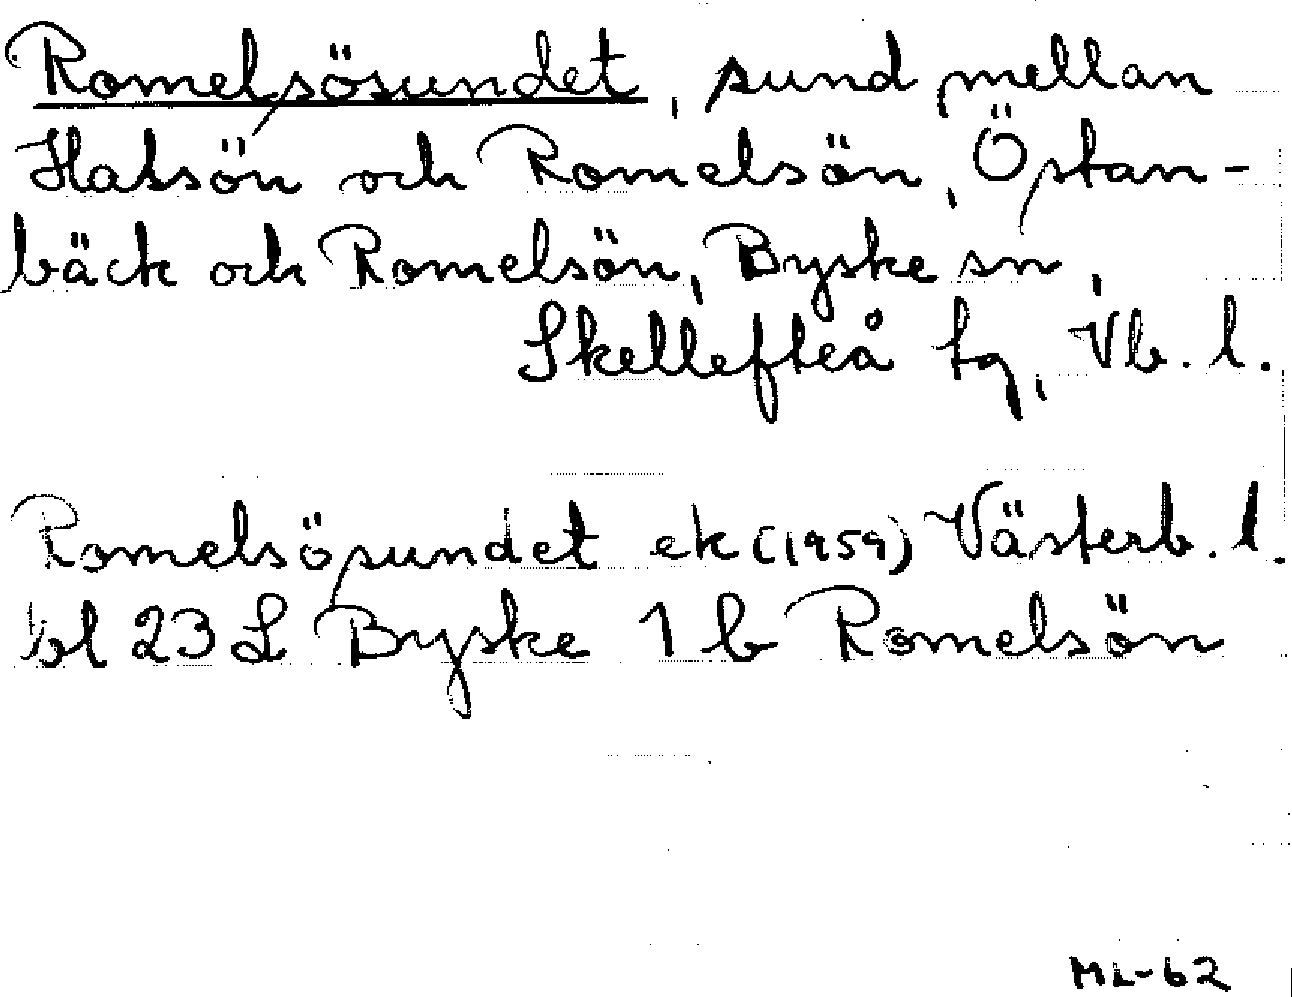 Romelsösundet, sund mellan
Halsön och Romelsön, Östan-
bäck och Romelsön, Byske sn,
Skellefteå tg, Vb. l.
Romelsösundet ek (1959) Västerb. l.
bl 23 L Byske 1 b Romelsön
ML-62